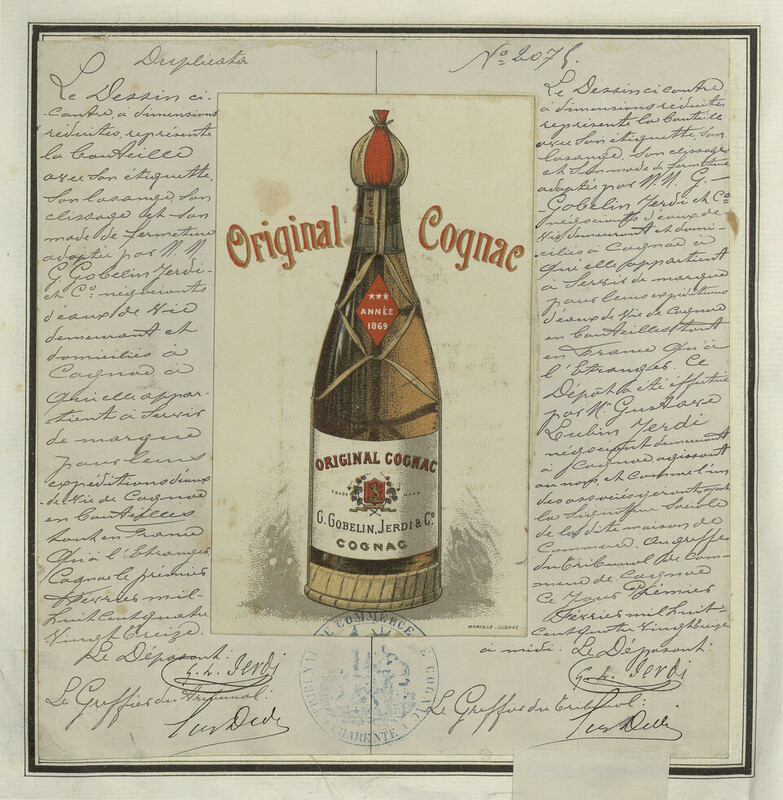 Duplicata
Le Dessin ci-
contre, à dimensions
réduites, représente
la bouteille
avec son étiquette,
son losange, son
clissage et son
mode de fermeture
adoptée par M. M.
G. Gobelin Jerdi
et Co négociants
d'eaux de Vie
demeurant et
domiciliés à
Cognac à
qu'elle appar-
tient à Servir
de marque
pour leurs
expéditions d'eaux
de Vie de Cognac
en bouteilles
tant en France
qu'à l'Etranger,
Cognac le premier
Février mil
huit cent quatre
Vingt treize.
Le Déposant:
G. L. Jerdi
Le Greffier du Tribunal:
Original Cognac
***
ANNÉE
1869
ORIGINAL COGNAC
TRADE MARK
G. GOBELIN, JERDI & Co
COGNAC
TRIBUNAL DE COMMERCE DE COGNAC
CHARENTE
No 2075.
Le Dessin ci contre
à dimensions réduites
représente la bouteille
avec son étiquette, son
losange, son clissage
et son mode de fermeture
adoptée par M. M. G.
Gobelin Jerdi et Co
négociants d'eaux de
Vie demeurant et domi-
ciliés à Cognac à
qu'elle appartient
à Servir de marque
pour leurs expéditions
d'eaux de Vie de Cognac
en bouteilles tant
en France qu'à
l'Etranger. Ce
Dépôt a été effectué
par Mr Gustave
Lubin Jerdi
négociant demeurant
à Cognac agissant
au nom et comme l'un
des associés gérants ayant
la Signature Sociale
de la dite maison de
Commerce. Au greffe
du tribunal de Com-
merce de Cognac
Ce Jour Premier
Février mil huit
Cent quatre vingt treize
à midi. Le Déposant:
G. L. Jerdi
Le Greffier du Tribunal: